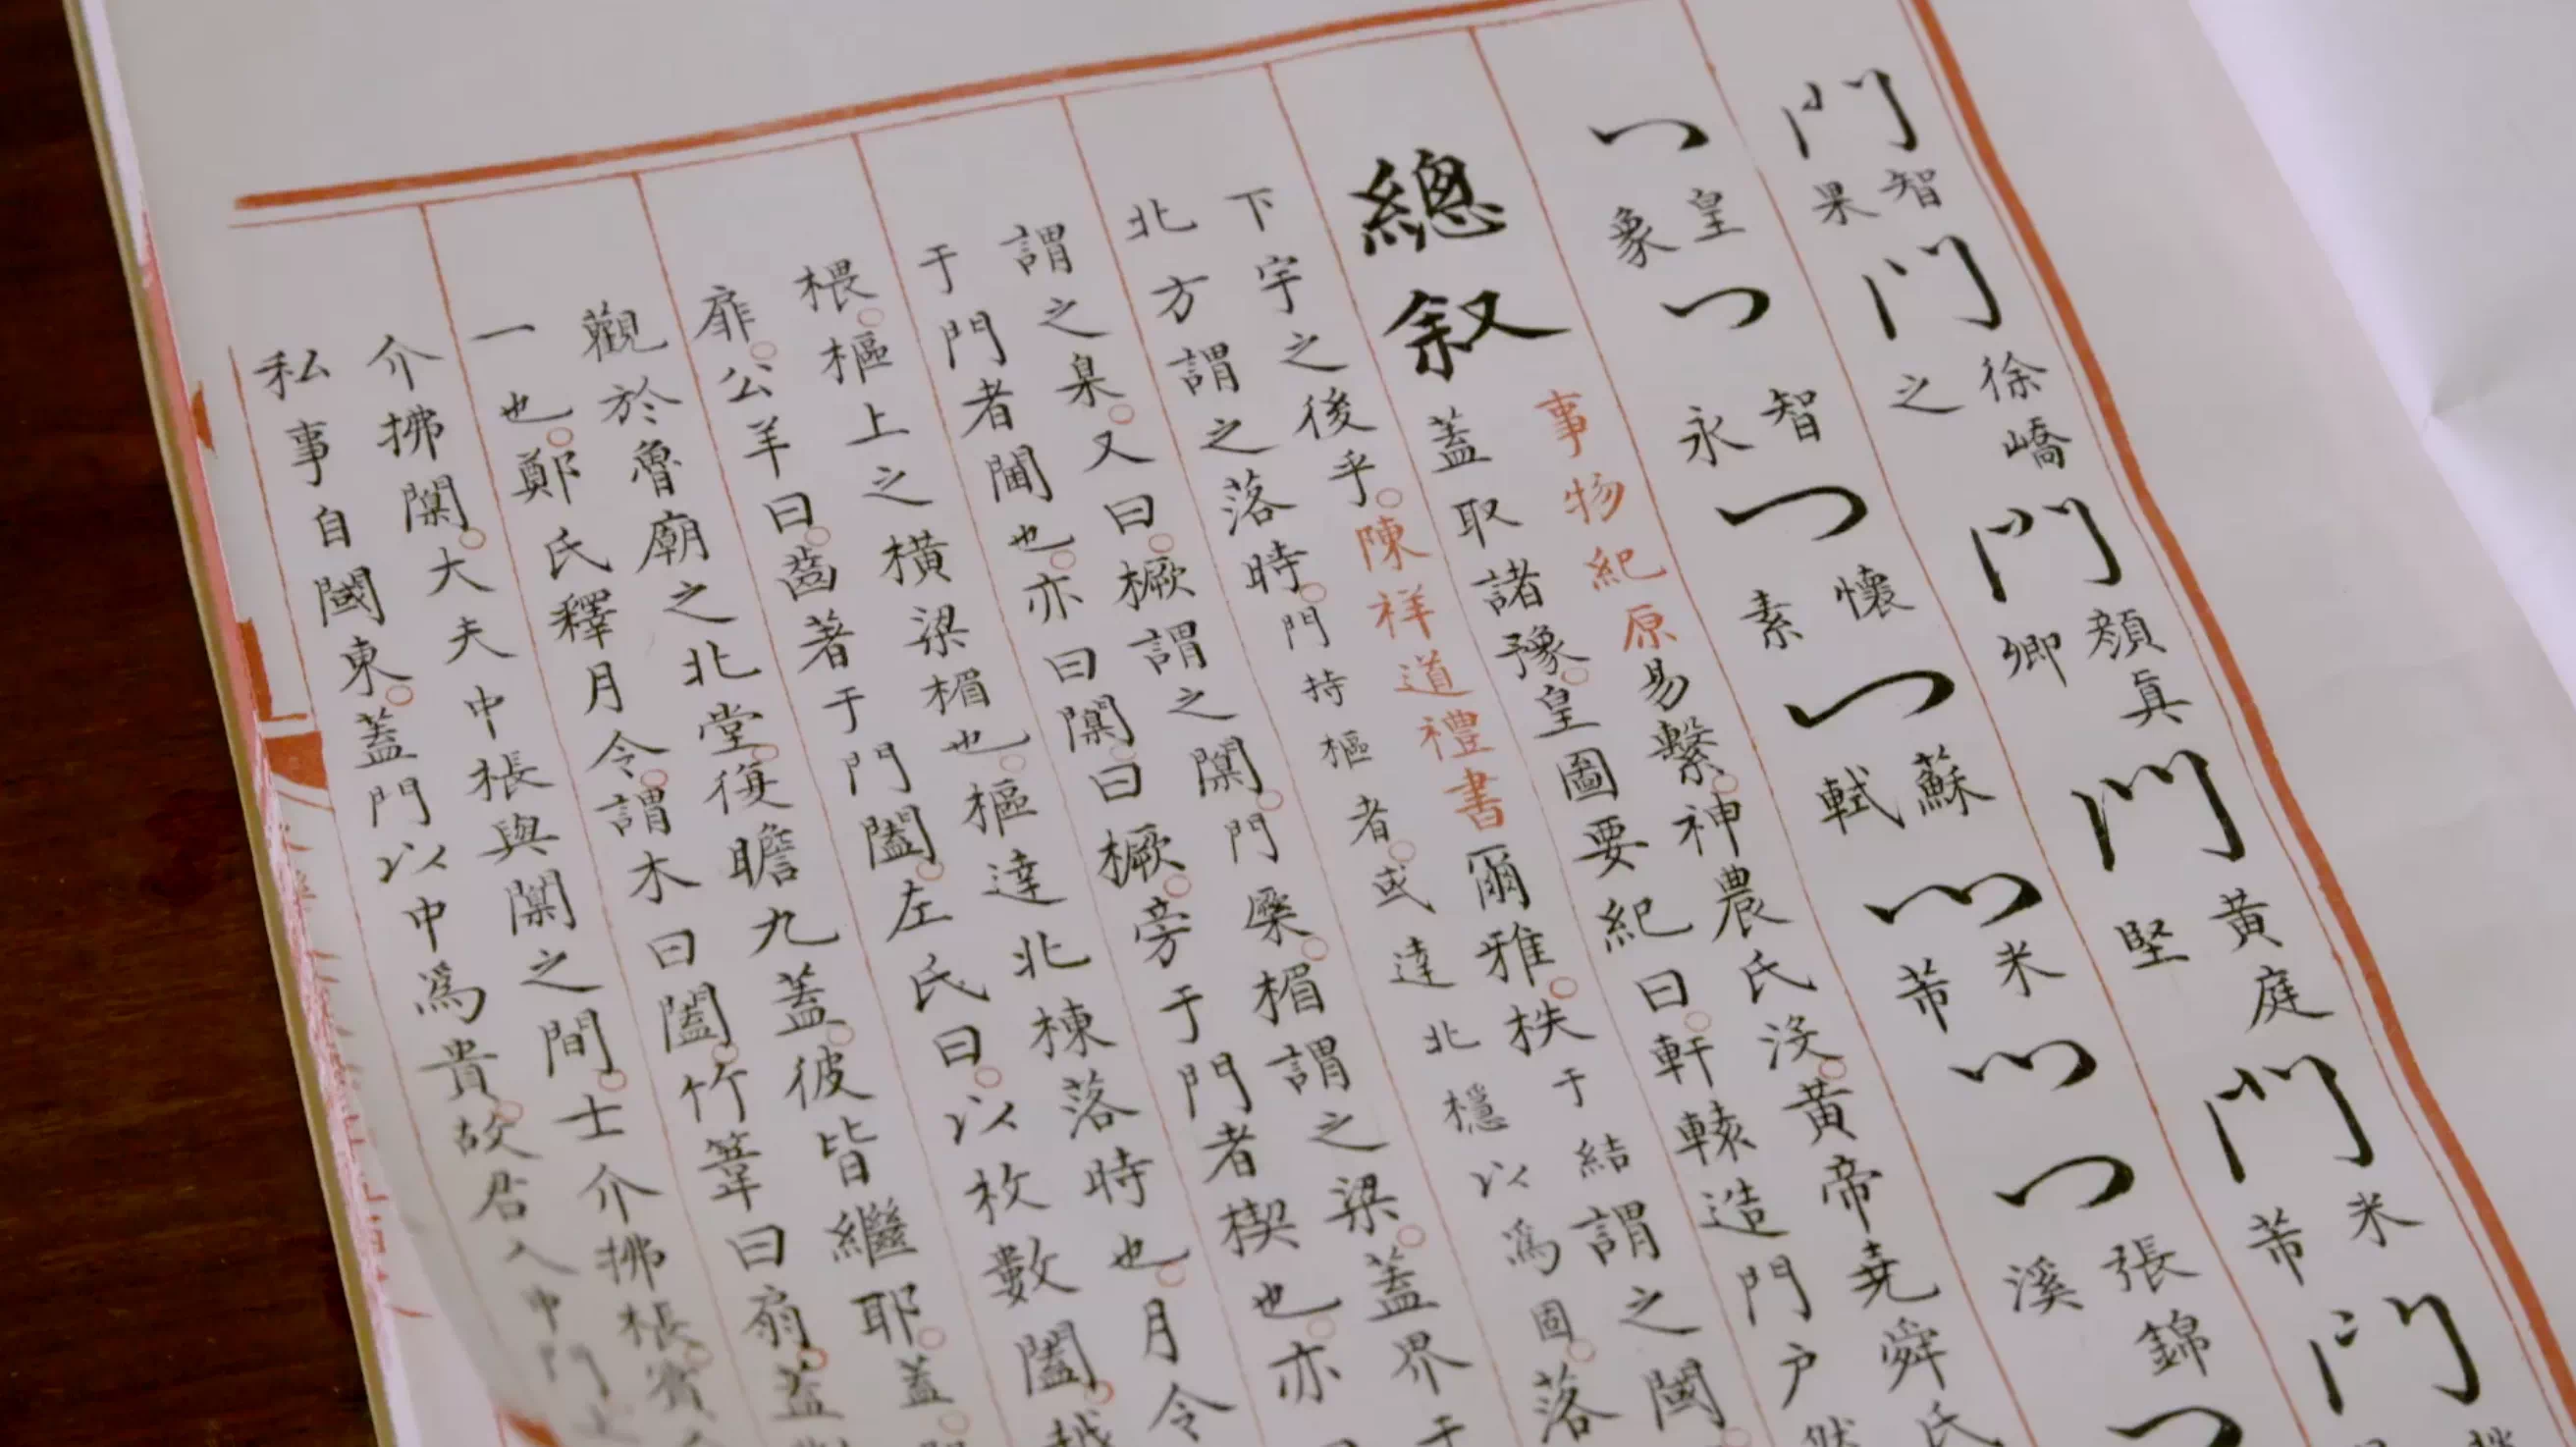 門 智果 門 徐嶠之 門 顏真卿 門 黃庭堅 門 米芾 門
皇象 智永 懷素 蘇軾 米芾 張錦溪
總叙
事物紀原易繫。神農氏沒。黃帝堯舜氏
蓋取諸豫。皇圖要紀曰。軒轅造門户然
下宇之後乎。陳祥道禮書爾雅。柣于結謂之閾
北方謂之落時。門持樞者。或達北穩以爲固。落
謂之臬。又曰。橛謂之闑。門 楣謂之梁。蓋界于
于門者閫也。亦曰闑。曰橛。旁于門者楔也。亦曰
椳。樞上之橫梁楣也。樞達北棟落時也。月令
扉。公羊曰。齒著于門闔。左氏曰。以枚數闔。越
觀於魯廟之北堂。復瞻九蓋。彼皆繼耶。蓋
一也。鄭氏釋月令。謂木曰闔。竹葦曰扇。蓋
介拂闑。大夫中棖與闑之間。士介拂棖。賓
私事自閾東。蓋門以中爲貴。故君入中門